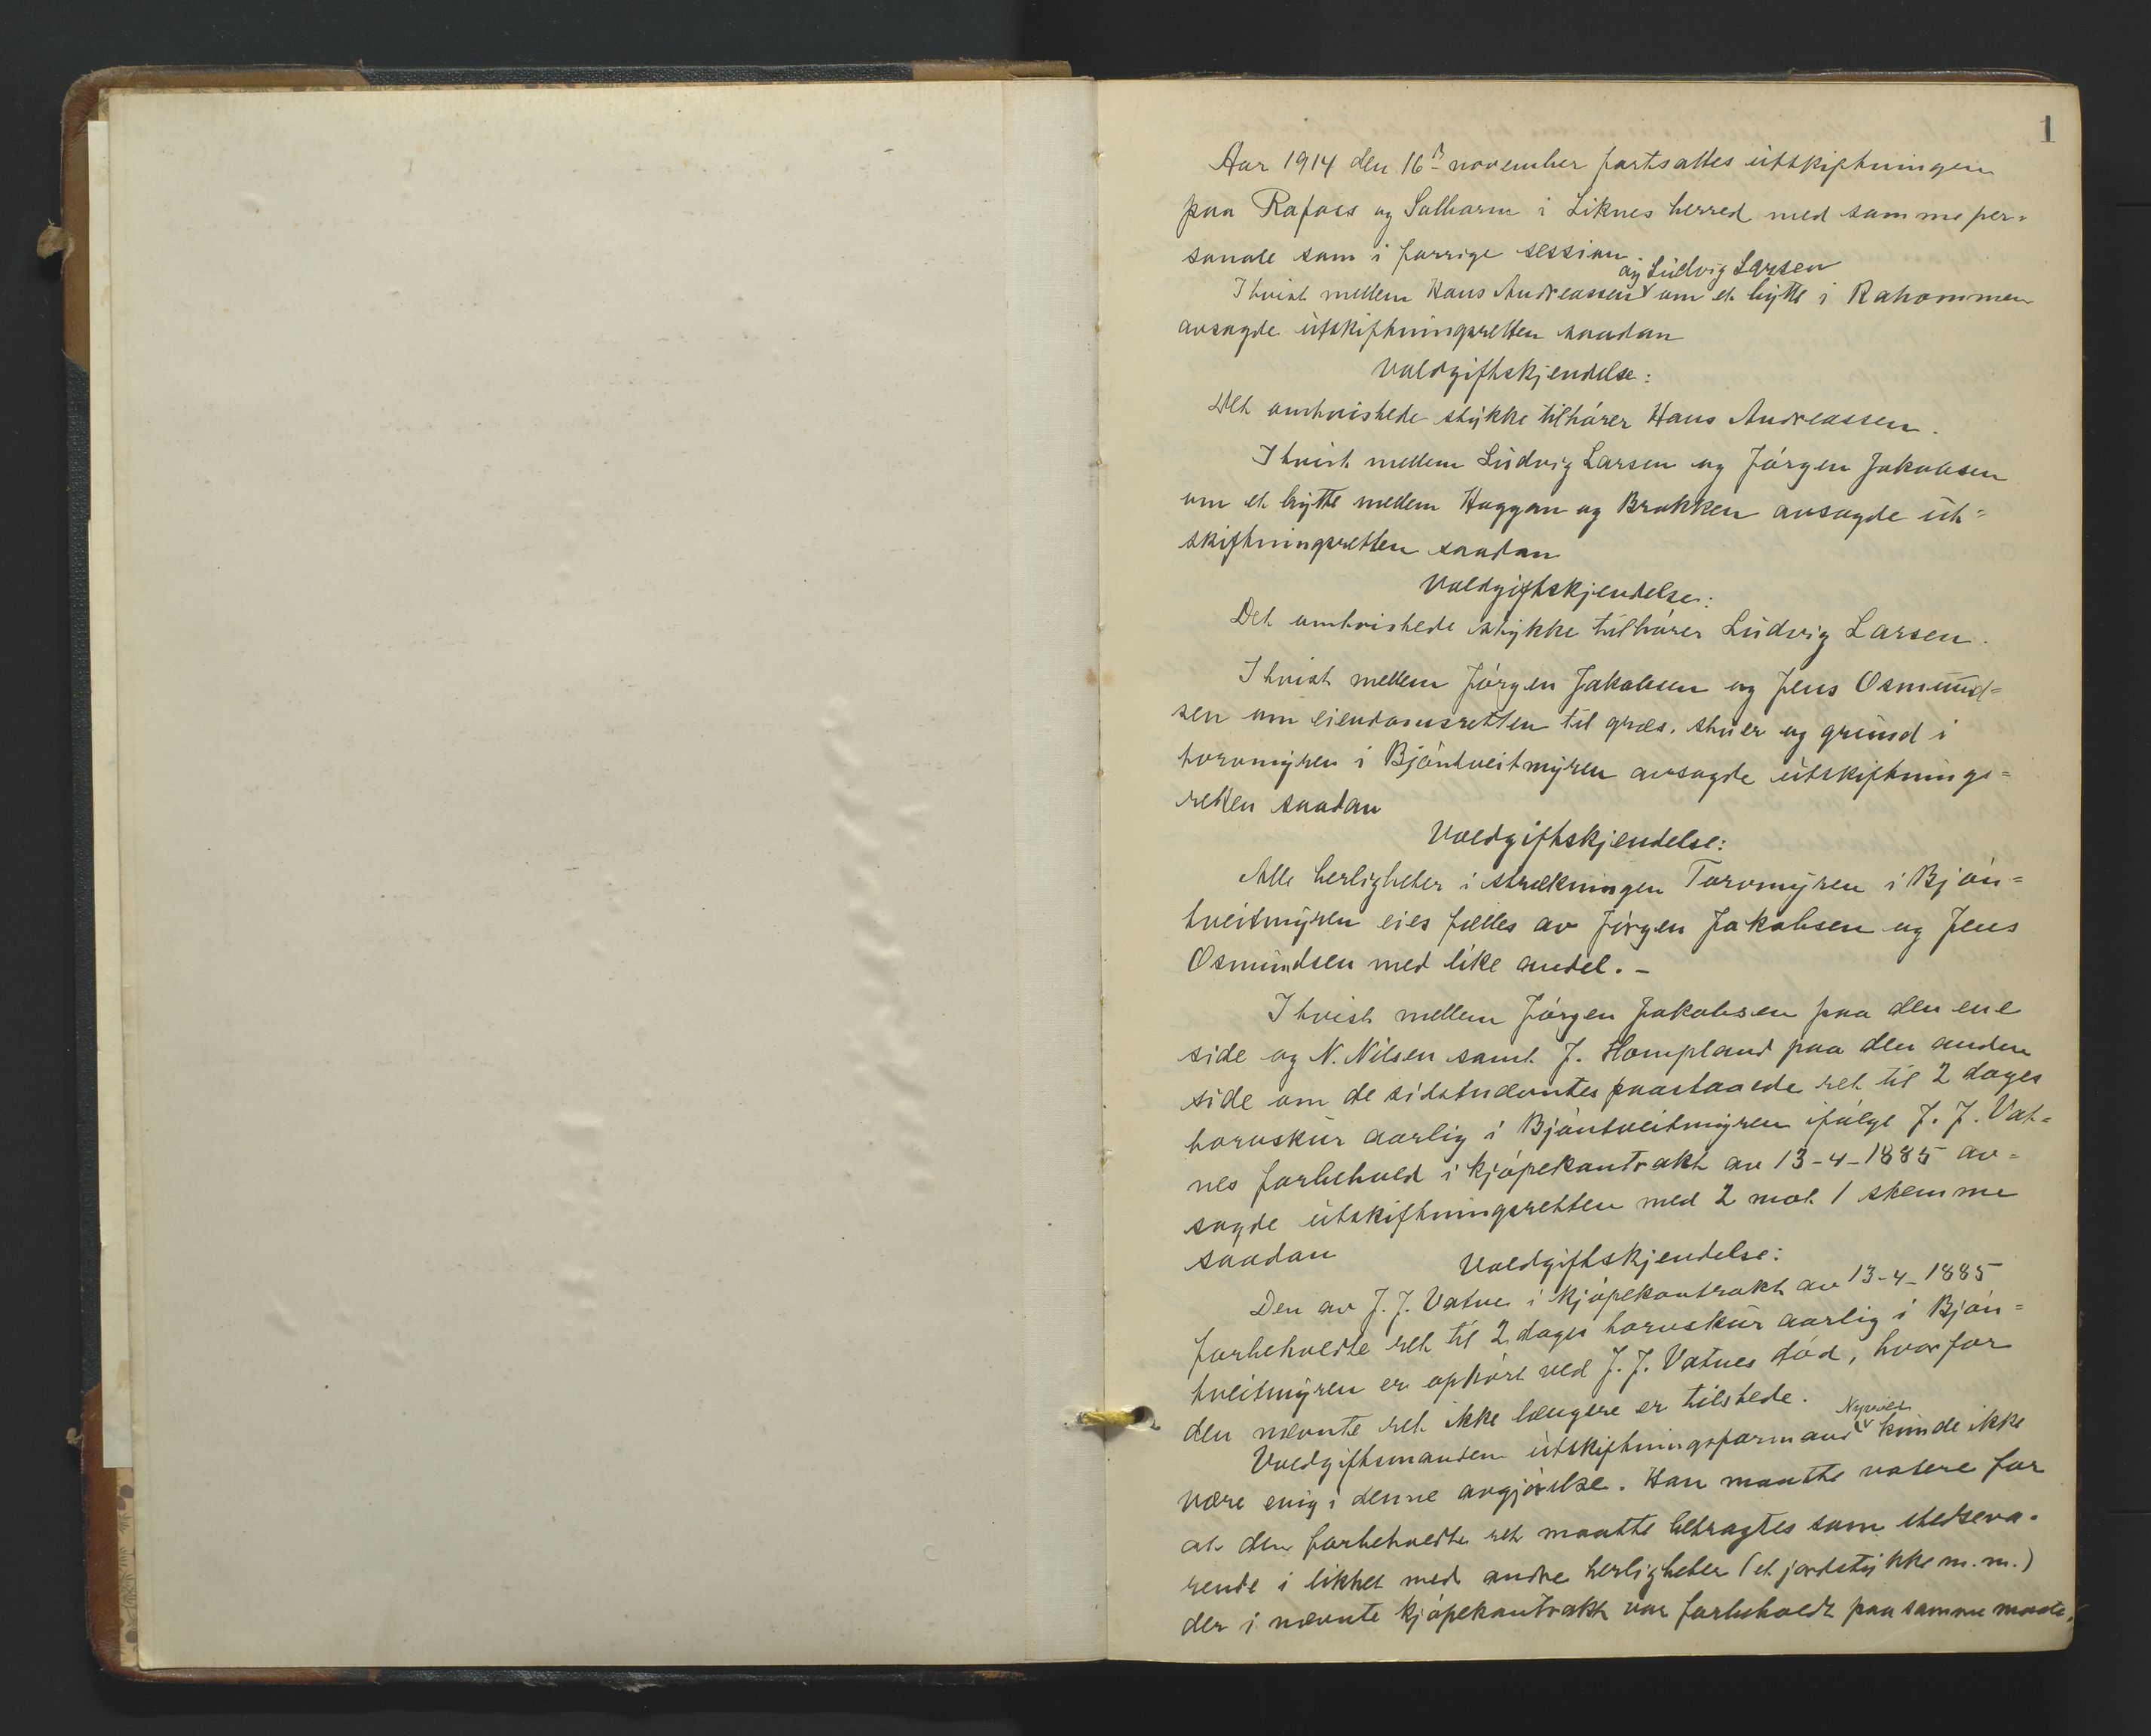 1
Aar 1914 den 16de november fortsattes utskiftningen
paa Rafoss og Salhawn i Liknes herred med samme per-
sonale som i forrige session.
I tvist mellem Hans Andreassen og Ludvig Larsen om et bytte i Rahommen
avsagde utskiftningsretten saadan
Voldgiftskjendelse:
Det omtvistede stykke tilhører Hans Andreassen.
I tvist mellem Ludvig Larsen og Jørgen Jakobsen
om et bytte mellem Haggan og Brakken avsagde ut-
skiftningsretten saadan
Voldgiftskjendelse:
Det omtvistede stykke tilhører Ludvig Larsen.
I tvist mellem Jørgen Jakobsen og Jens Osmund-
sen om eiendomsretten til græs, stuer og grund i
torvmyren i Bjøntveitmyren avsagde utskiftnings-
retten saadan
Voldgiftskjendelse:
Alle herligheter i strækningen Torvmyren i Bjøn-
tveitmyren eies fælles av Jørgen Jakobsen og Jens
Osmundsen med like andel. -
I tvist mellem Jørgen Jakobsen paa den ene
side og N. Nilsen samt J. Hompland paa den anden
side om de sidstnævntes paastaaede ret til 2 dages
torvskur aarlig i Bjøntveitmyren ifølge J. J. Vat-
nes forbehold i kjøpekontrakt av 13-4-1885 av-
sagde utskiftningsretten med 2 mot 1 stemme
saadan
Voldgiftskjendelse:
Den av J. J. Vatne i kjøpekontrakt av 13-4-1885
forbeholdte ret til 2 dages torvskur aarlig i Bjøn-
tveitmyren er ophørt ved J. J. Vatnes død, hvorfor
den nævnte ret ikke længere er tilstede.
Voldgiftsmanden utskiftningsformand Nyvold kunde ikke
være enig i denne avgjørelse. Han maatte votere for
at den forbeholdte ret maatte betragtes som stedseva-
rende i likhet med andre herligheter (et jordstykke m.m.)
der i nævnte kjøpekontrakt var forbeholdt paa samme maate.